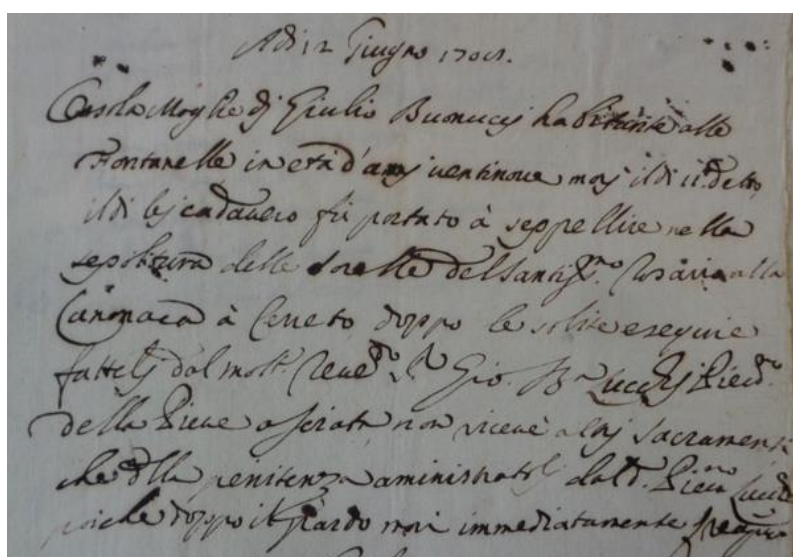 Adi 12 Giugno
Orsola Moglie di Giulio Buonucij habitante alle
Fontanelle in età d'anj ventinove morj il dì 11 detto
il di lej cadavero fù portato à seppellire nella
sepoltura delle sorelle del Santiss.mo Rosario alla
Canonaca à Cerreto doppo le solite esequie
fattelj dal molt. Reve.do Sr. Gio. Ba. Lucchesj
della Pieve a Sciata non riceve altrj sacramenti
che della penitenza aministratolj dal d. Lucch
poiche doppo immediatamente